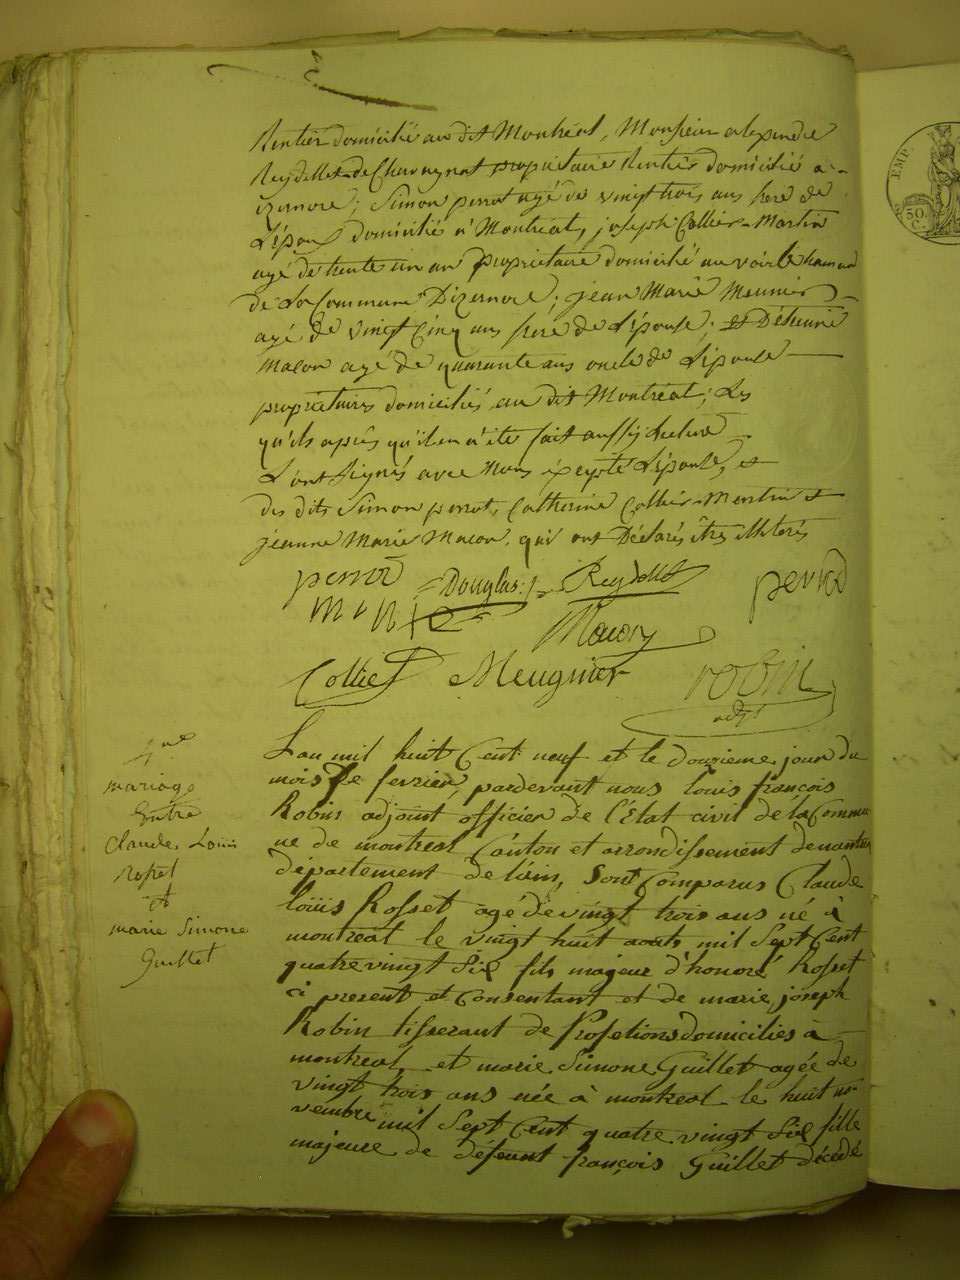 Rentier domicilié au dit Montréal, Monsieur alexandre
Reydellet de Chavagnat propriétaire Rentier domicilié a
izernore; Simon perrot agé de vingt trois ans frere de
L'époux domicilié à Montréal, joseph Collier-Martin
agé de trente un an propriétaire domicilié au voir le hameau
de La Commune Dizernore; jean Marie Meunier
agé de vingt Cinq ans frere de L'épouse; et Détienne
Macon agé de quarante ans oncle de L'épouse
propriétaires domiciliés au dit Montréal; Les
qu'ils après qu'il en a été fait aussy Lecture
L'ont Signés avec Nous éxepté L'épouse, et
des dits Simon perrot, Catherine Collier-Martin et
jeanne Marie Macon, qui ont Déclarés êtres illiterés
perrod Douglas Reydellet perrod
Macon
Collier Meugnier robin
adjt
4me
mariage
Entre
Claude Louis
Rosset
et
marie Simone
Guillet
L'an mil huit Cent neuf et le douzieme jour du
mois de fevrier, pardevant nous louis françois
Robin adjoint officier de l'Etat civil de la Commu
ne de montreal Canton et arrondissement de nantua
département de l'ain, Sont Comparus Claude
louis Rosset agé de vingt trois ans né à
montreal le vingt huit aouts mil Sept Cent
quatre vingt Six fils majeur d'honoré Rosset
ci present et Consentant et de marie joseph
Robin tisserant de Profetions domicilies à
montreal, et marie Simone Guillet agée de
vingt trois ans née à montreal le huit no
vembre mil Sept Cent quatre vingt Six fille
majeure de défeunt françois Guillet décédé